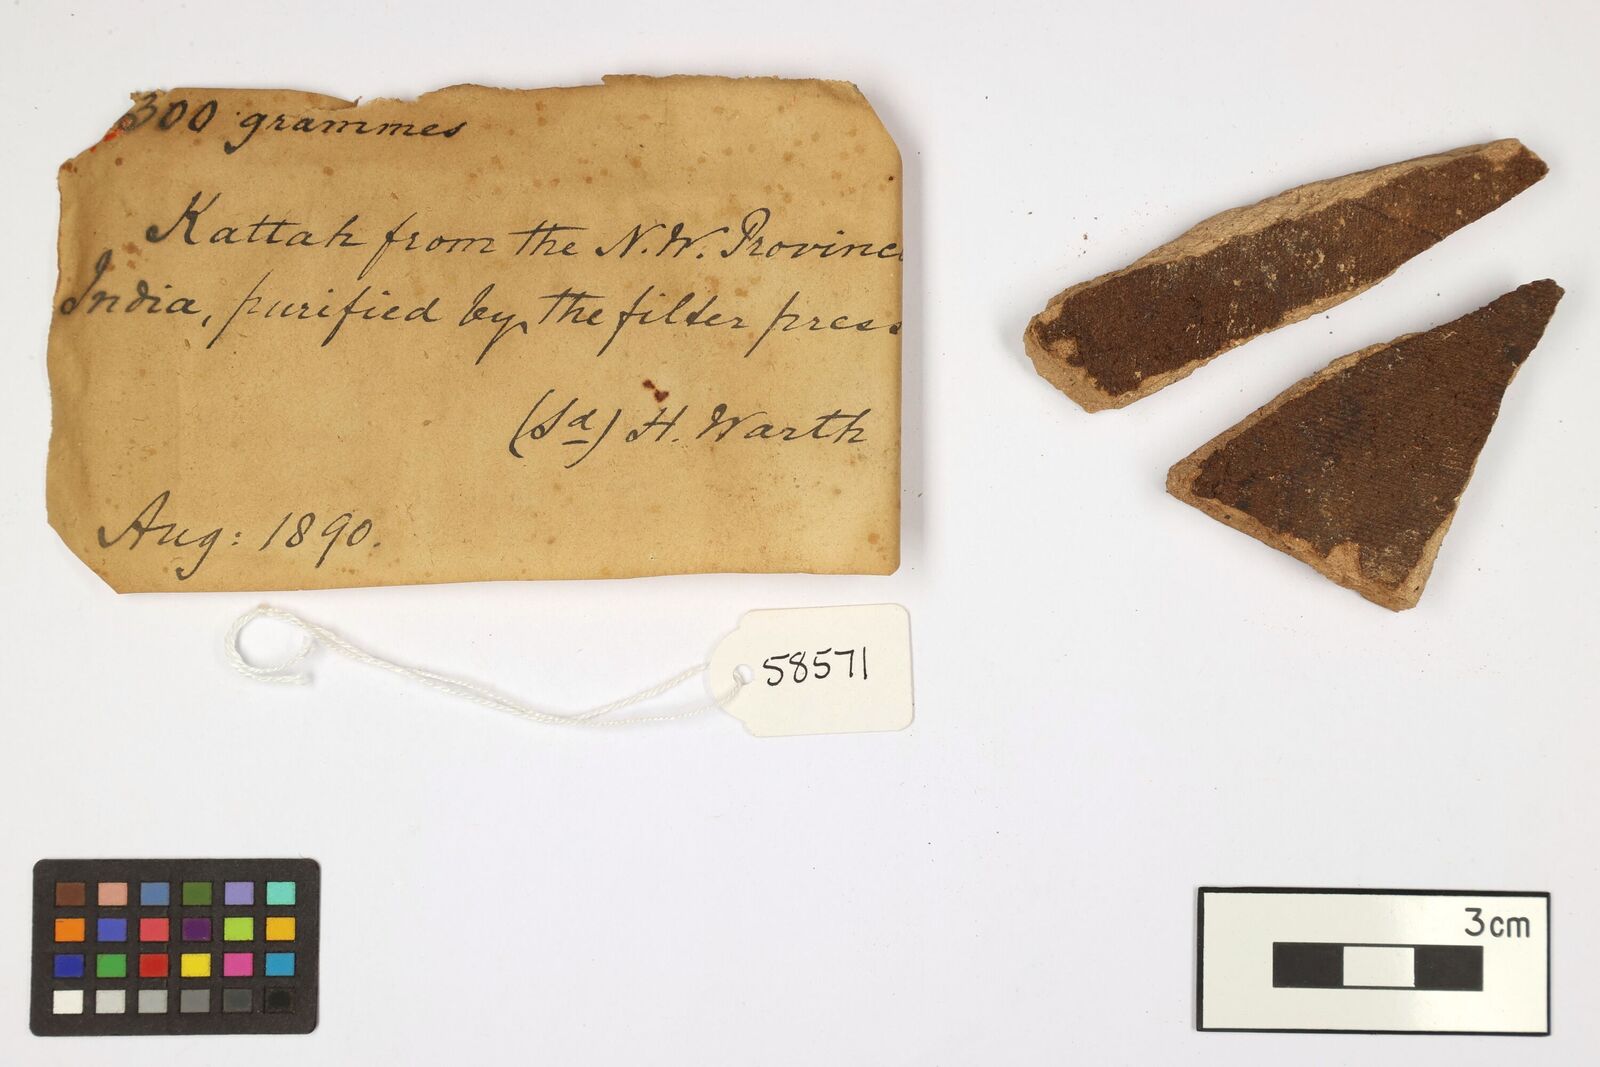 300 grammes
Kattah from the N.W. Provinc
India, purified by the filter press
(Sd) H. Warth
Aug: 1890.
58571
3cm